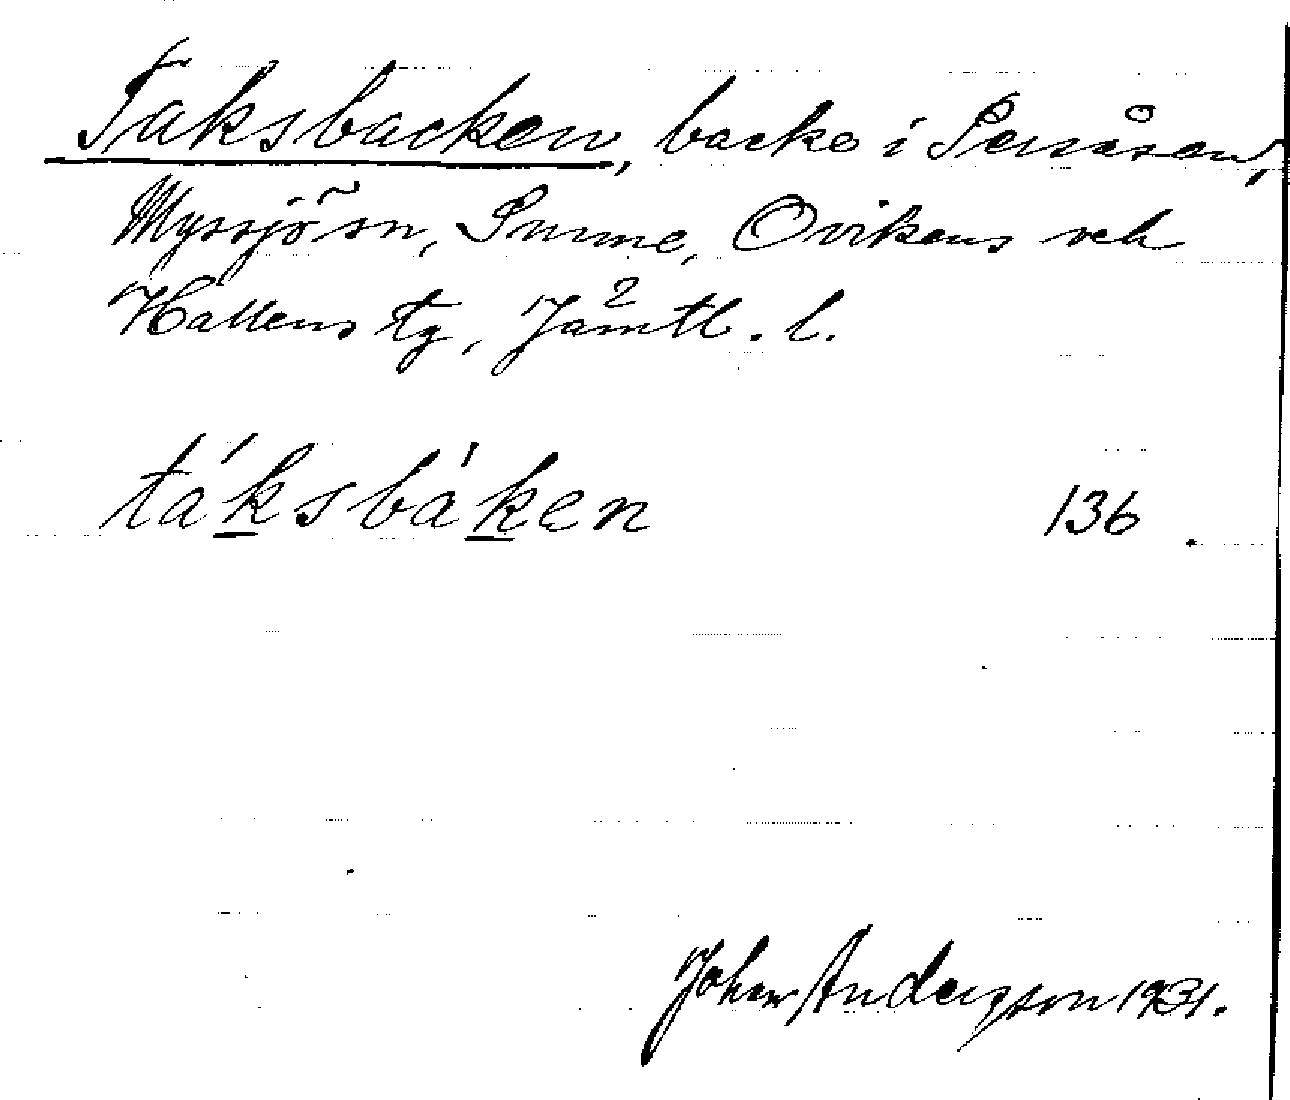 Taksbacken, backe i Persåsen,
Myssjö sn, Sunne, Ovikens och
Hallens tg, Jämtl. l.
táksbáken 136
Johan Anderson 1931.